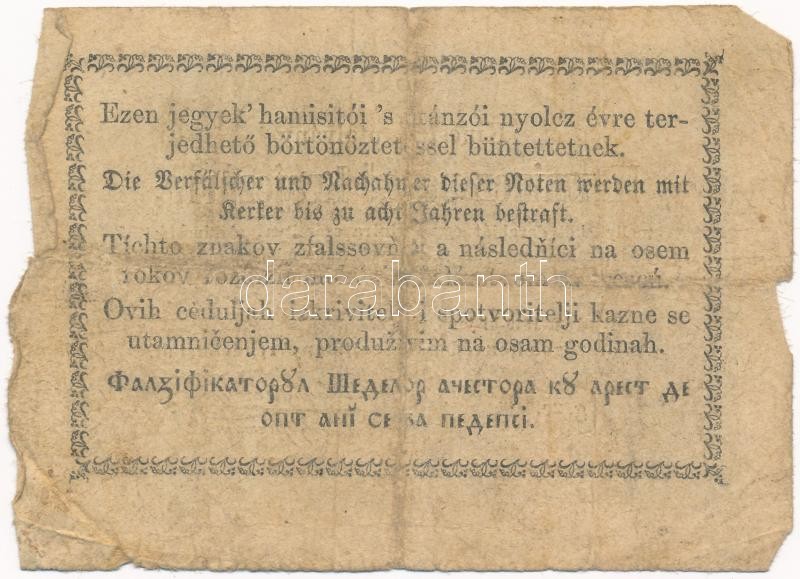 Ezen jegyek' hamisitói 's utánzói nyolcz évre ter-
jedhető börtönöztetéssel büntettetnek.
Die Verfälscher und Nachahmer dieser Noten werden mit
Kerker bis zu acht Jahren bestraft.
Tíchto znakov zfalssovňíci a následňíci na osem
rokov
darabanth
Ovih ceduljah i spotvoritelji kazne se
utamničenjem, produživim na osam godinah.
Фалзіфікаторꙋл Шеделор ачестора кꙋ арест де
опт анй се ва педепсі.